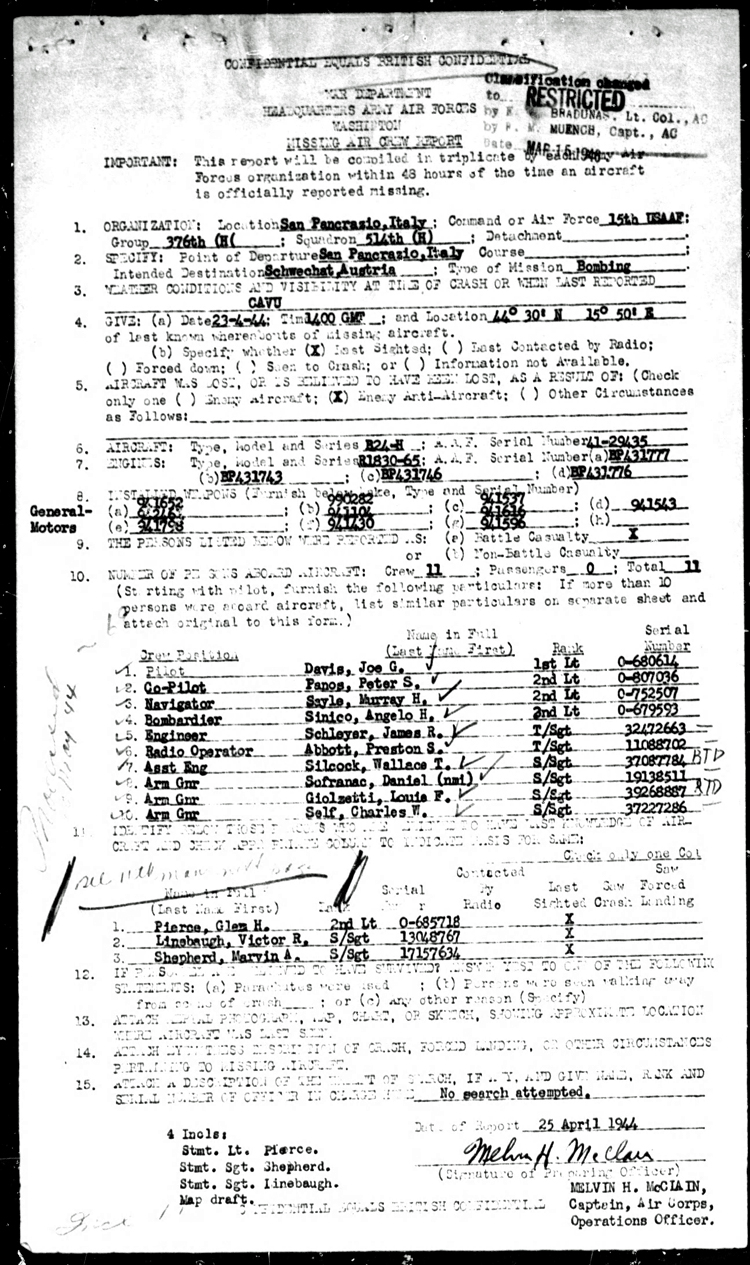 CONFIDENTIAL EQUALS BRITISH CONFIDENTIAL
Classification changed
to RESTRICTED
by BRADUNAS, Lt. Col., AC
by MUENCH, Capt., AC
Date MAR 15 1946
WAR DEPARTMENT
HEADQUARTERS ARMY AIR FORCES
WASHINGTON
MISSING AIR CREW REPORT
IMPORTANT: This report will be compiled in triplicate by each Army Air
Forces organization within 48 hours of the time an aircraft
is officially reported missing.
1. ORGANIZATION: Location San Pancrazio, Italy; Command or Air Force 15th USAAF;
Group 376th (H( ; Squadron 514th (H) ; Detachment
2. SPECIFY: Point of Departure San Pancrazio, Italy Course ;
Intended Destination Schwechat, Austria ; Type of Mission Bombing
3. WEATHER CONDITIONS AND VISIBILITY AT TIME OF CRASH OR WHEN LAST REPORTED
CAVU
4. GIVE: (a) Date 23-4-44; Time 1400 GMT ; and Location 44° 30' N 15° 50' E
of last known whereabouts of missing aircraft.
(b) Specify whether (X) Last Sighted; ( ) Last Contacted by Radio;
( ) Forced down; ( ) Seen to Crash; or ( ) Information not Available.
5. AIRCRAFT WAS LOST, OR IS BELIEVED TO HAVE BEEN LOST, AS A RESULT OF: (Check
only one ( ) Enemy Aircraft; (X) Enemy Anti-Aircraft; ( ) Other Circumstances
as Follows:
6. AIRCRAFT: Type, Model and Series B24-H ; A.A.F. Serial Number 41-29435
7. ENGINES: Type, Model and Series R1830-65; A.A.F. Serial Number (a) BP431777
(b) BP431743 (c) BP431746 ; (d) BP431776
8. INSTALLED WEAPONS (Furnish below Make, Type and Serial Number)
General-Motors
(a) 941652 ; (b) 990282 ; (c) 941537 ; (d) 941543
(e) 941798 ; (f) 941430 ; (g) 941596 ; (h)
9. THE PERSONS LISTED BELOW WERE REPORTED AS: (a) Battle Casualty X
or (b) Non-Battle Casualty
10. NUMBER OF PERSONS ABOARD AIRCRAFT: Crew 11 ; Passengers 0 ; Total 11
(Starting with pilot, furnish the following particulars: If more than 10
persons were aboard aircraft, list similar particulars on separate sheet and
attach original to this form.)
Name in Full Serial
Crew Position (Last Name First) Rank Number
1. Pilot Davis, Joe G. 1st Lt O-680614
2. Co-Pilot Panos, Peter S. 2nd Lt O-807036
3. Navigator Sayle, Murray H. 2nd Lt O-752507
4. Bombardier Sinico, Angelo H. 2nd Lt O-679593
5. Engineer Schleyer, James R. T/Sgt 32472663
6. Radio Operator Abbott, Preston S. T/Sgt 11088702
7. Asst Eng Silcock, Wallace T. S/Sgt 37087784 RTD
8. Arm Gnr Sofranac, Daniel (nmi) S/Sgt 19138511
9. Arm Gnr Giolzetti, Louie F. S/Sgt 39268887 RTD
10. Arm Gnr Self, Charles W. S/Sgt 37227286
11. IDENTIFY BELOW THOSE PERSONS WHO ARE BELIEVED TO HAVE LAST KNOWLEDGE OF AIR-
CRAFT AND CHECK APPROPRIATE COLUMN TO INDICATE BASIS FOR SAME:
Check only one Col
Contacted Saw
Name in Full Serial By Last Saw Forced
(Last Name First) Rank Number Radio Sighted Crash Landing
1. Pierce, Glen H. 2nd Lt O-685718 X
2. Linebaugh, Victor R. S/Sgt 13048767 X
3. Shepherd, Marvin A. S/Sgt 17157634 X
12. IF PERSONNEL ARE BELIEVED TO HAVE SURVIVED, ANSWER YES TO ONE OF THE FOLLOWING
STATEMENTS: (a) Parachutes were used ; (b) Persons were seen walking away
from scene of crash ; or (c) Any other reason (Specify)
13. ATTACH AERIAL PHOTOGRAPH, MAP, CHART, OR SKETCH, SHOWING APPROXIMATE LOCATION
WHERE AIRCRAFT WAS LAST SEEN.
14. ATTACH EYEWITNESS DESCRIPTION OF CRASH, FORCED LANDING, OR OTHER CIRCUMSTANCES
PERTAINING TO MISSING AIRCRAFT.
15. ATTACH A DESCRIPTION OF THE EXTENT OF SEARCH, IF ANY, AND GIVE NAME, RANK AND
SERIAL NUMBER OF OFFICER IN CHARGE HERE No search attempted.
Date of Report 25 April 1944
4 Incls:
Stmt. Lt. Pierce.
Stmt. Sgt. Shepherd.
Stmt. Sgt. Linebaugh.
Map draft.
Melvin H. McClain
(Signature of Preparing Officer)
MELVIN H. McCLAIN,
Captain, Air Corps,
Operations Officer.
CONFIDENTIAL EQUALS BRITISH CONFIDENTIAL